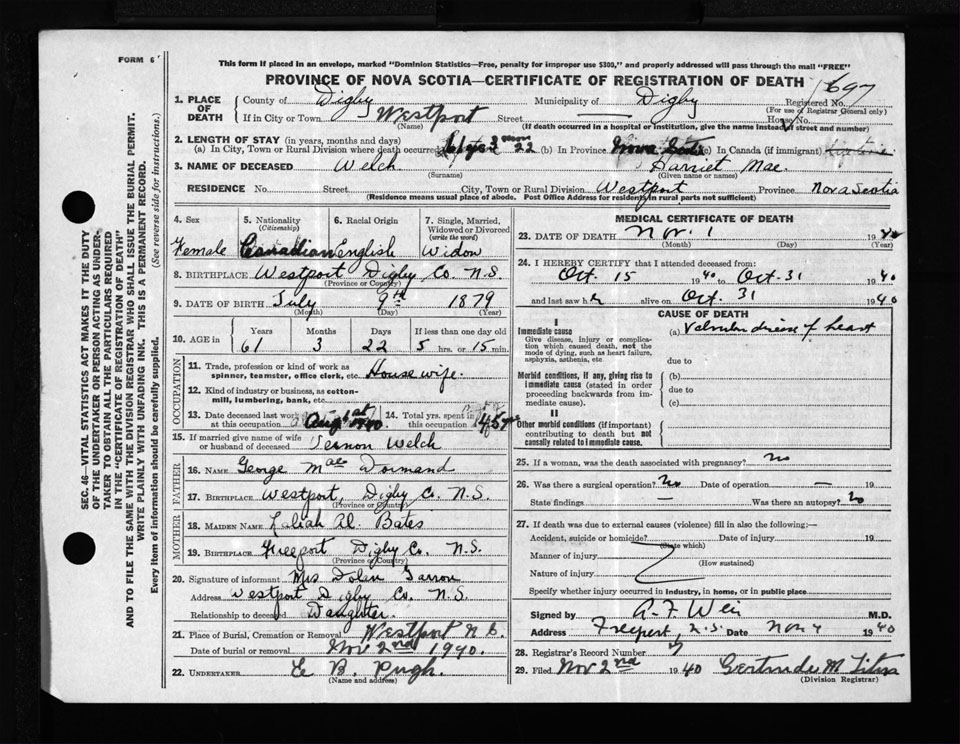 FORM 6
This form if placed in an envelope, marked "Dominion Statistics—Free, penalty for improper use $300," and properly addressed will pass through the mail "FREE"
PROVINCE OF NOVA SCOTIA—CERTIFICATE OF REGISTRATION OF DEATH
1. PLACE OF DEATH
County of Digby Municipality of Digby Registered No. 697
(For use of Registrar General only)
If in City or Town Westport Street House No.
(Name) (If death occurred in a hospital or institution, give the name instead of street and number)
2. LENGTH OF STAY (in years, months and days)
(a) In City, Town or Rural Division where death occurred 61 yrs 3 mon 22 (b) In Province Nova Scotia (c) In Canada (if immigrant)
3. NAME OF DECEASED Welch Harriet Mae.
(Surname) (Given name or names)
RESIDENCE No. Street City, Town or Rural Division Westport Province Nova Scotia
(Residence means usual place of abode. Post Office Address for residents in rural parts not sufficient)
4. Sex 5. Nationality (Citizenship) 6. Racial Origin 7. Single, Married, Widowed or Divorced (write the word)
Female Canadian English Widow
8. BIRTHPLACE Westport Digby Co. N.S.
(Province or Country)
9. DATE OF BIRTH July 9th 1879
(Month) (Day) (Year)
10. AGE in Years Months Days If less than one day old
61 3 22 5 hrs. or 15 min.
OCCUPATION
11. Trade, profession or kind of work as spinner, teamster, office clerk, etc. Housewife.
12. Kind of industry or business, as cotton-mill, lumbering, bank, etc.
13. Date deceased last worked at this occupation Aug 1940 14. Total yrs. spent in this occupation 45
15. If married give name of wife or husband of deceased Vernon Welch
FATHER
16. NAME George Mac Dormand
17. BIRTHPLACE Westport, Digby Co. N.S.
(Province or Country)
MOTHER
18. MAIDEN NAME Bates
19. BIRTHPLACE Freeport Digby Co. N.S.
(Province or Country)
20. Signature of informant Mrs
Address Westport Digby Co. N.S.
Relationship to deceased Daughter.
21. Place of Burial, Cremation or Removal Westport N.S.
Date of burial or removal Nov 2nd 1940.
22. UNDERTAKER E B. Pugh.
(Name and address)
MEDICAL CERTIFICATE OF DEATH
23. DATE OF DEATH Nov. 1 1940
(Month) (Day) (Year)
24. I HEREBY CERTIFY that I attended deceased from:
Oct 15 1940 to Oct. 31 1940
and last saw h alive on Oct. 31 1940
CAUSE OF DEATH
I
Immediate cause (a) Valvular disease of heart
Give disease, injury or complication which caused death, not the mode of dying, such as heart failure, asphyxia, asthenia, etc.
due to
Morbid conditions, if any, giving rise to immediate cause (stated in order proceeding backwards from immediate cause).
(b)
due to
(c)
II
Other morbid conditions (if important) contributing to death but not causally related to immediate cause.
25. If a woman, was the death associated with pregnancy? no
26. Was there a surgical operation? No Date of operation — 19
State findings — Was there an autopsy? No
27. If death was due to external causes (violence) fill in also the following:—
Accident, suicide or homicide? Date of injury 19
(State which)
Manner of injury
(How sustained)
Nature of injury
Specify whether injury occurred in industry, in home, or in public place
Signed by A. F. Weir M.D.
Address Freeport, N.S. Date Nov 1940
28. Registrar's Record Number 7
29. Filed Nov 2nd 1940 Gertrude M Titus
(Division Registrar)
SEC. 46—VITAL STATISTICS ACT MAKES IT THE DUTY
OF THE UNDERTAKER OR PERSON ACTING AS UNDERTAKER
TO OBTAIN ALL THE PARTICULARS REQUIRED
IN THE "CERTIFICATE OF REGISTRATION OF DEATH"
AND TO FILE THE SAME WITH THE DIVISION REGISTRAR WHO SHALL ISSUE THE BURIAL PERMIT.
WRITE PLAINLY WITH UNFADING INK. THIS IS A PERMANENT RECORD.
Every item of information should be carefully supplied. (See reverse side for instructions.)